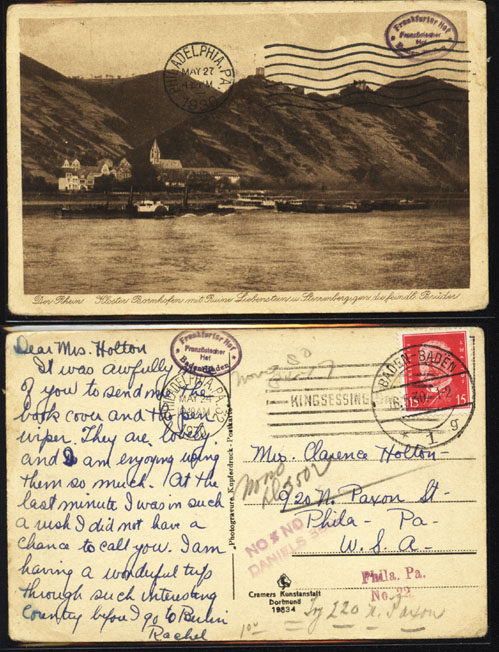 Frankfurter Hof
Französischer
Hof
Baden-Baden
PHILADELPHIA, PA.
MAY 27
Der Rhein Kloster Bornhofen mit Ruine Liebenstein u. Sterrenberg gen. die feindl. Brüder
Dear Mrs. Holton
It was awfully
of you to send me
book cover and the pen
wiper. They are lovely
and I am enjoying using
them so much. At the
last minute I was in such
a rush I did not have a
chance to call you. I am
having a wonderful trip
through such interesting
Country before I go to Berlin
Rachel
Frankfurter Hof
Französischer
Hof
Baden-Baden
PHILADELPHIA, PA.
MAY 27
KINGSESSING
BADEN-BADEN
15
15
1 g
Photogravure Kupferdruck-Postkarte
Mrs. Clarence Holton-
920 N. Paxon St-
Phila- Pa-
U.S.A-
NO & NO
DANIELS
Phila. Pa.
No. 22
Cramers Kunstanstalt
Dortmund
19834
Try 220 N. Paxon